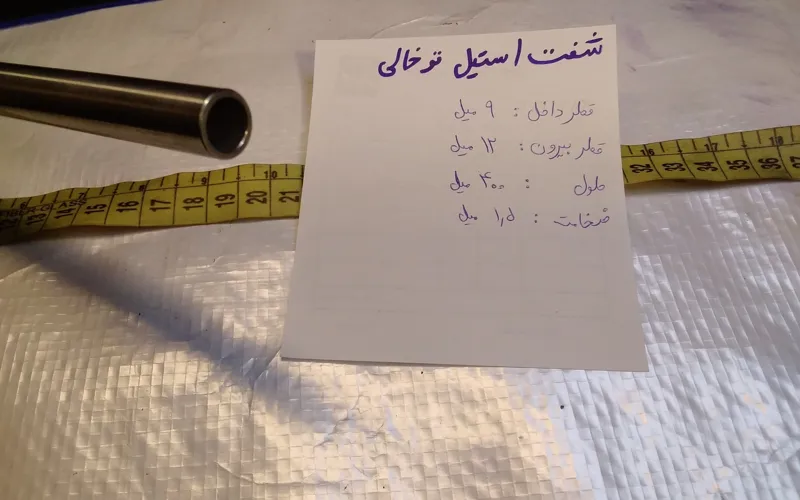 شفت استیل توخالی
قطر داخل : ۹ میل
قطر بیرون : ۱۲ میل
طول : ۴۰۰ میل
ضخامت : ۱٫۵ میل
15 16 17 18 19 20 21
9 10
16 17 18
32 33 34 35 36 37